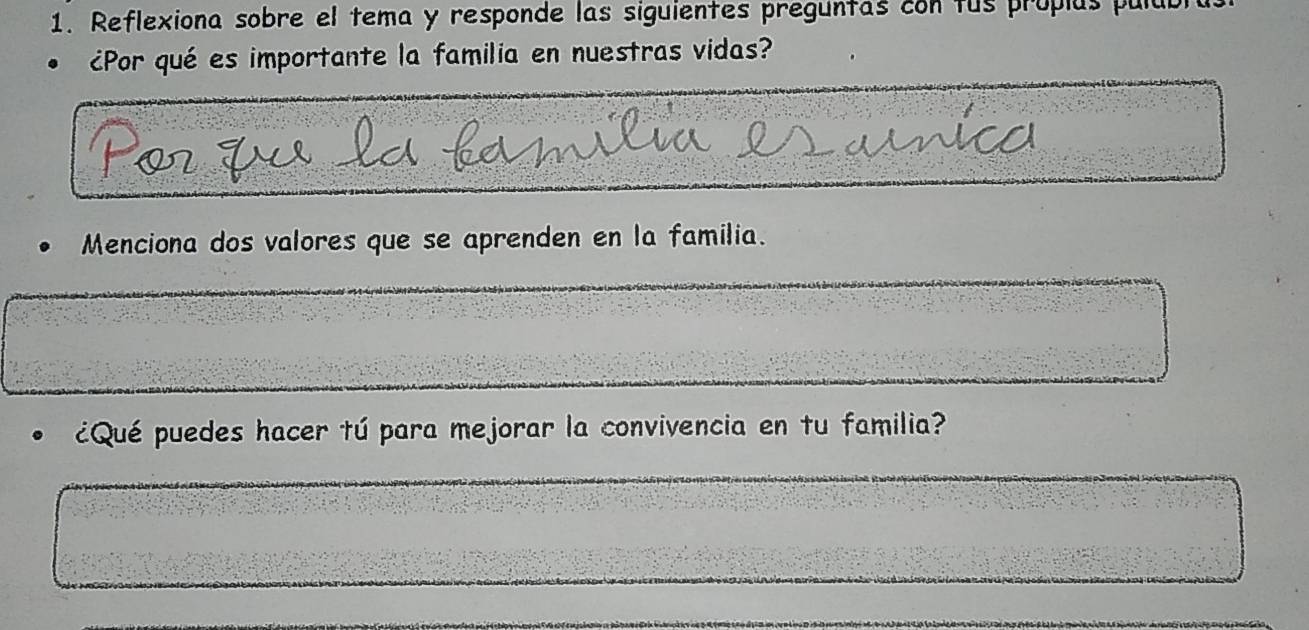 1. Reflexiona sobre el tema y responde las siguientes preguntas con tus propias palabras.
• ¿Por qué es importante la familia en nuestras vidas?
Por que la familia es unica
• Menciona dos valores que se aprenden en la familia.
• ¿Qué puedes hacer tú para mejorar la convivencia en tu familia?